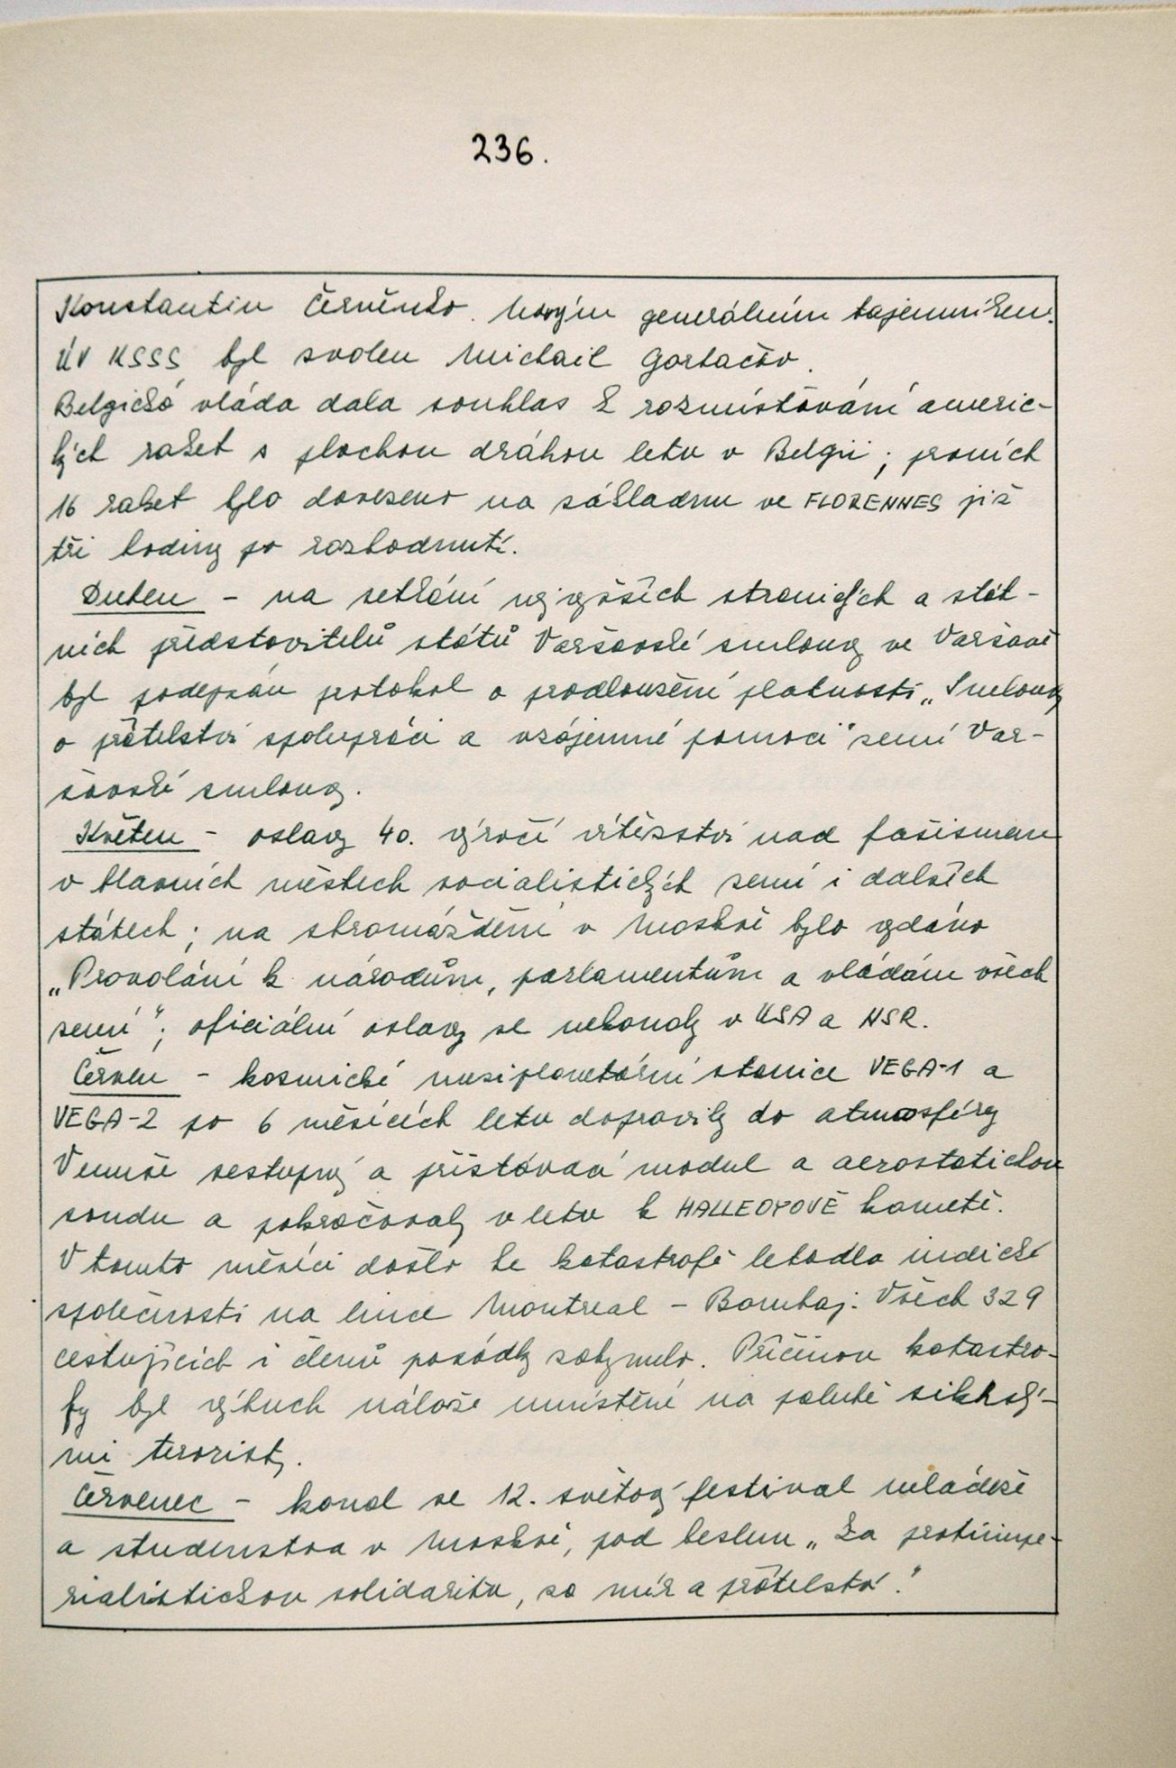 236.
Konstantin Černěnko. Novým generálním tajemníkem
ÚV KSSS byl zvolen Michail Gorbačov.
Belgická vláda dala souhlas k rozmístování americ-
kých raket s plochou dráhou letu v Belgii; prvních
16 raket bylo dovezeno na základnu ve FLORENNES již
tři hodiny po rozhodnutí.
Duben - na setkání nejvyšších stranických a stát-
ních představitelů států Varšavské smlouvy ve Varšavě
byl podepsán protokol o prodloužení platnosti „Smlouvy
o přátelství spolupráci a vzájemné pomoci" zemí Var-
šavské smlouvy.
Květen - oslavy 40. výročí vítězství nad fašismem
v hlavních městech socialistických zemí i dalších
státech; na shromáždění v Moskvě bylo vydáno
„Provolání k národům, parlamentům a vládám všech
zemí"; oficiální oslavy se nekonaly v USA a NSR.
Červen - kosmické meziplanetární stanice VEGA-1 a
VEGA-2 po 6 měsících letu dopravily do atmosféry
Venuše sestupný a přistávací modul a aerostatickou
sondu a pokračovaly v letu k HALLEOYOVĚ kometě.
V tomto měsíci došlo ke katastrofě letadla indické
společnosti na lince Montreal - Bombaj. Všech 329
cestujících i členů posádky zahynulo. Příčinou katastro-
fy byl výbuch nálože umístěné na palubě sikhský-
mi teroristy.
Červenec - konal se 12. světový festival mládeže
a studenstva v Moskvě, pod heslem „Za protiimpe-
rialistickou solidaritu, za mír a přátelství."